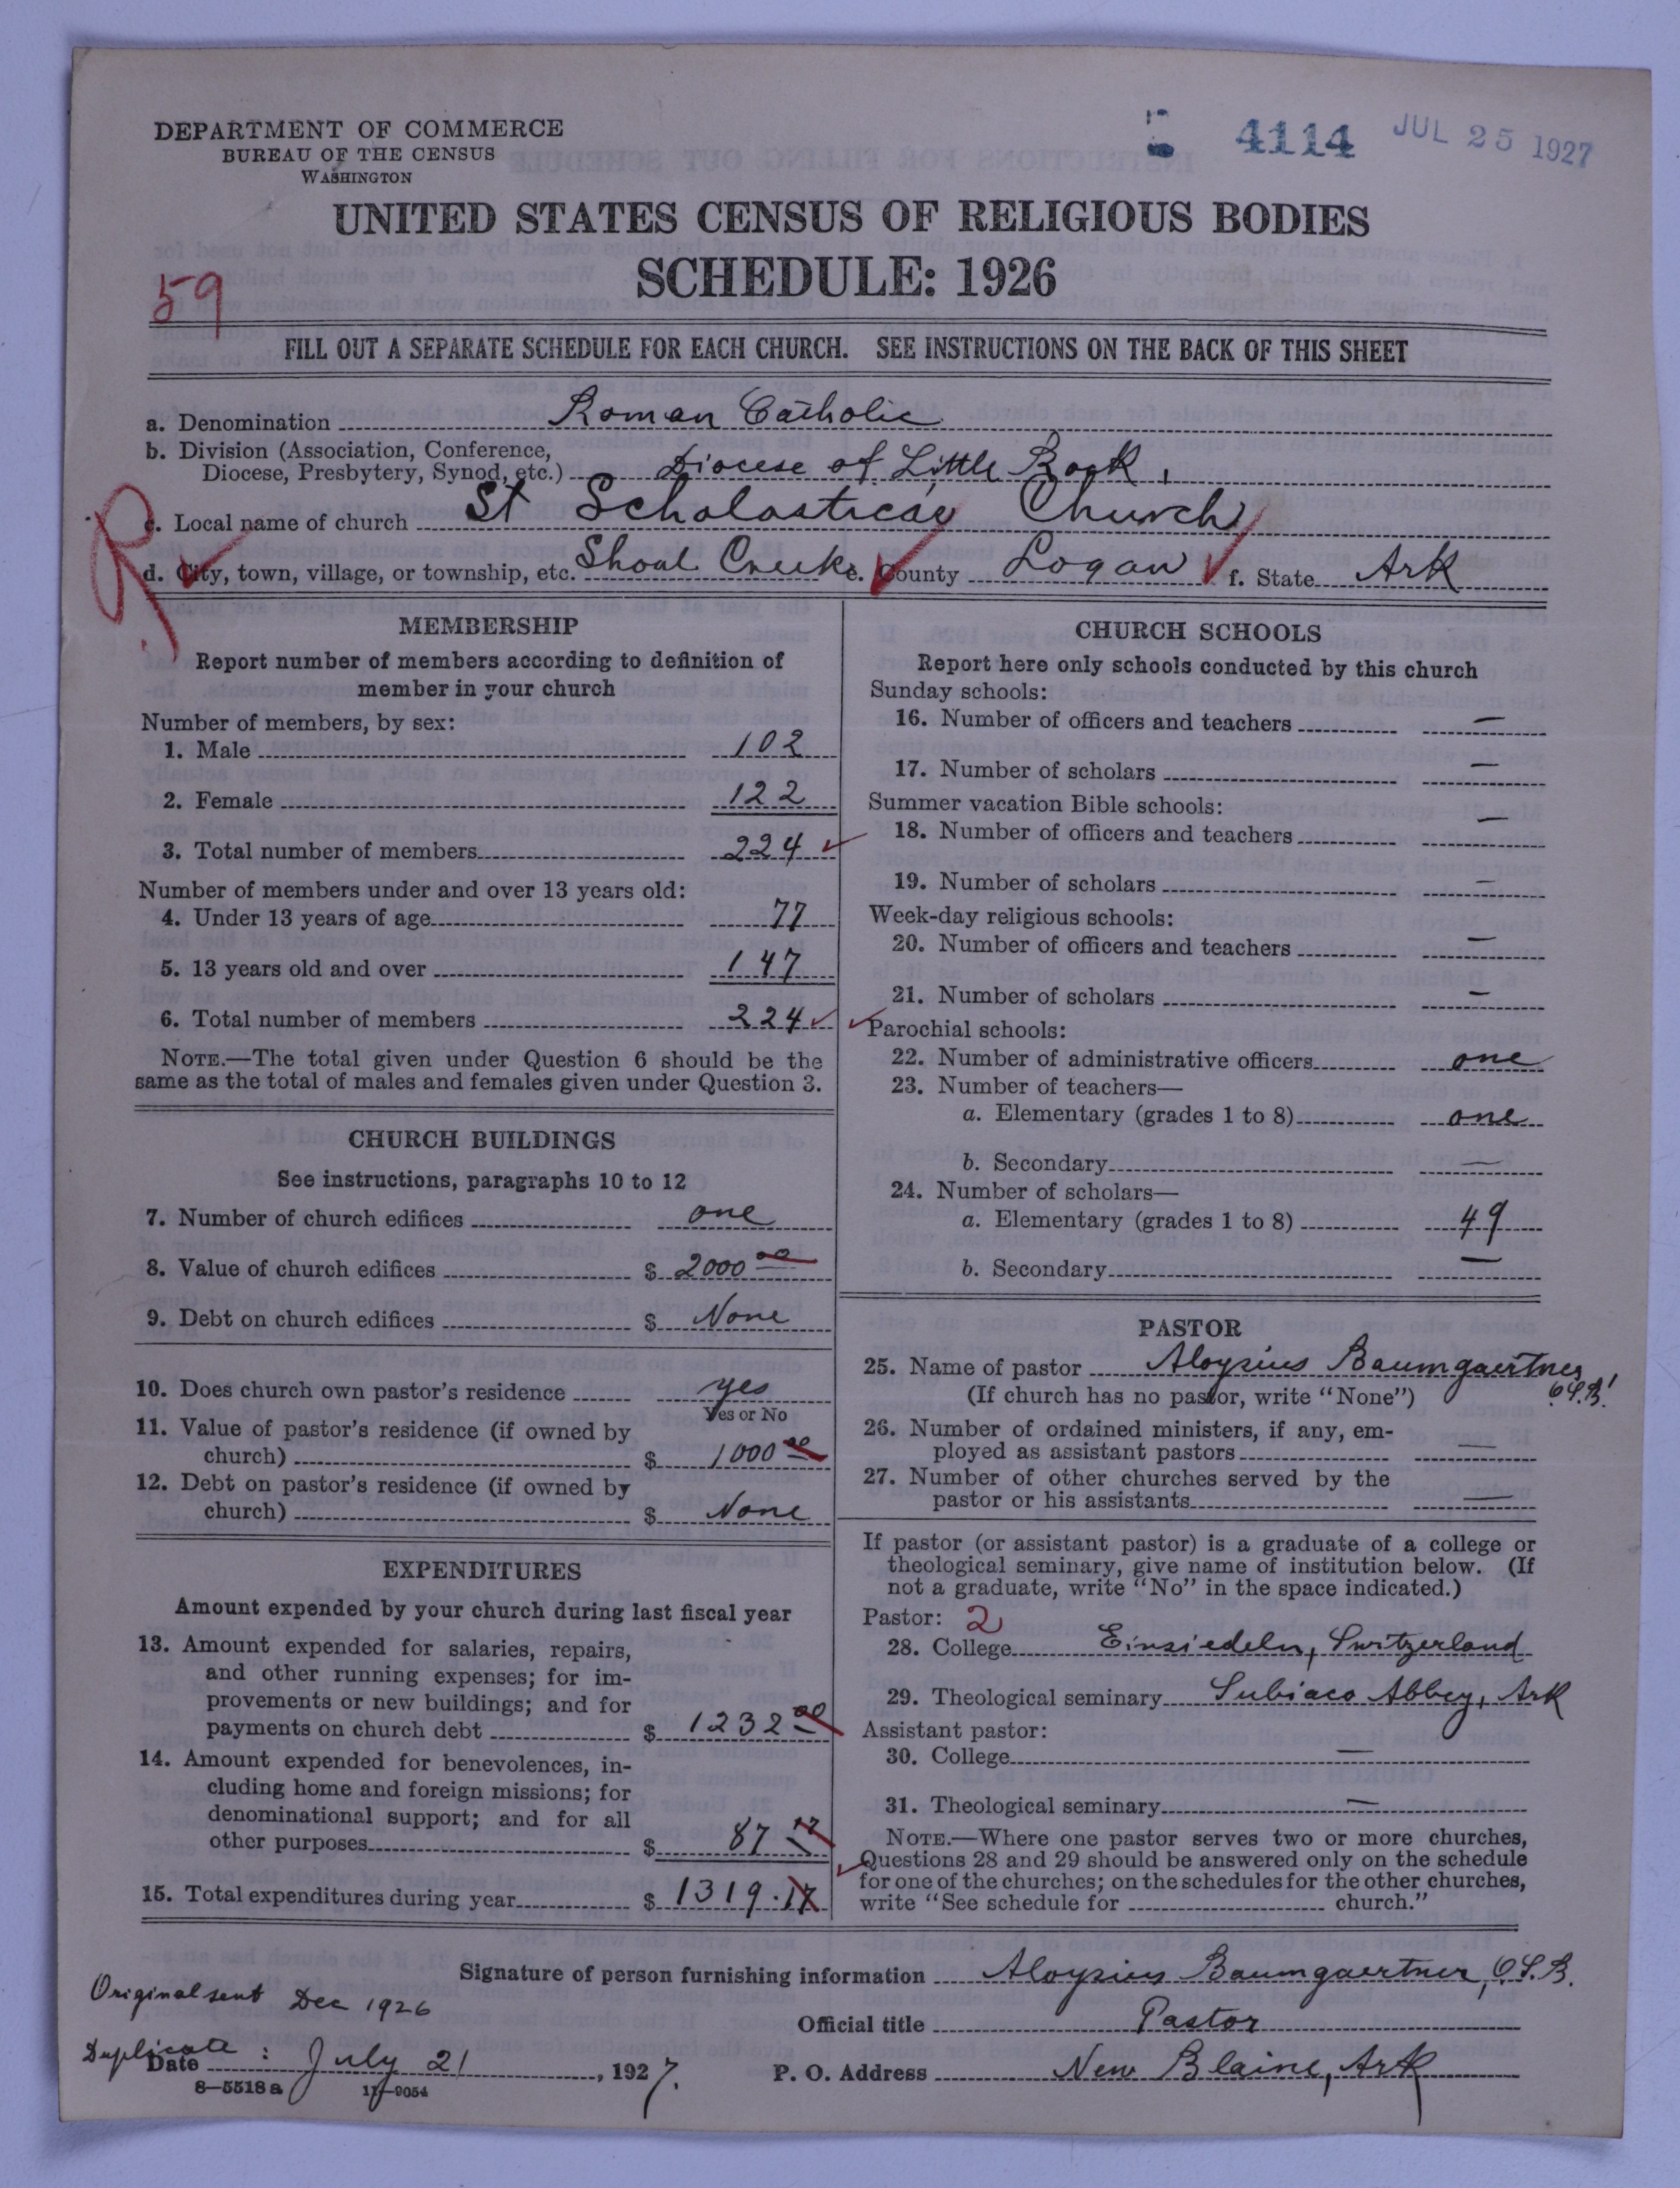 DEPARTMENT OF COMMERCE
BUREAU OF THE CENSUS
WASHINGTON
4114 JUL 25 1927
UNITED STATES CENSUS OF RELIGIOUS BODIES
SCHEDULE: 1926
59
FILL OUT A SEPARATE SCHEDULE FOR EACH CHURCH. SEE INSTRUCTIONS ON THE BACK OF THIS SHEET
a. Denomination Roman Catholic
b. Division (Association, Conference,
Diocese, Presbytery, Synod, etc.) Diocese of Little Rock,
c. Local name of church St Scholastica's Church
d. City, town, village, or township, etc. Shoal Creek e. County Logan f. State Ark
MEMBERSHIP
Report number of members according to definition of
member in your church
Number of members, by sex:
1. Male 102
2. Female 122
3. Total number of members 224
Number of members under and over 13 years old:
4. Under 13 years of age 77
5. 13 years old and over 147
6. Total number of members 224
NOTE.—The total given under Question 6 should be the
same as the total of males and females given under Question 3.
CHURCH BUILDINGS
See instructions, paragraphs 10 to 12
7. Number of church edifices one
8. Value of church edifices $ 2000 00
9. Debt on church edifices $ None
10. Does church own pastor's residence yes
Yes or No
11. Value of pastor's residence (if owned by
church) $ 1000 00
12. Debt on pastor's residence (if owned by
church) $ None
EXPENDITURES
Amount expended by your church during last fiscal year
13. Amount expended for salaries, repairs,
and other running expenses; for im-
provements or new buildings; and for
payments on church debt $ 1232 00
14. Amount expended for benevolences, in-
cluding home and foreign missions; for
denominational support; and for all
other purposes $ 87 17
15. Total expenditures during year $ 1319.17
CHURCH SCHOOLS
Report here only schools conducted by this church
Sunday schools:
16. Number of officers and teachers —
17. Number of scholars —
Summer vacation Bible schools:
18. Number of officers and teachers —
19. Number of scholars —
Week-day religious schools:
20. Number of officers and teachers —
21. Number of scholars —
Parochial schools:
22. Number of administrative officers one
23. Number of teachers—
a. Elementary (grades 1 to 8) one
b. Secondary —
24. Number of scholars—
a. Elementary (grades 1 to 8) 49
b. Secondary —
PASTOR
25. Name of pastor Aloysius Baumgaertner,
O.S.B.
(If church has no pastor, write "None")
26. Number of ordained ministers, if any, em-
ployed as assistant pastors —
27. Number of other churches served by the
pastor or his assistants —
If pastor (or assistant pastor) is a graduate of a college or
theological seminary, give name of institution below. (If
not a graduate, write "No" in the space indicated.)
Pastor: 2
28. College Einsiedeln, Switzerland
29. Theological seminary Subiaco Abbey, Ark
Assistant pastor:
30. College —
31. Theological seminary —
NOTE.—Where one pastor serves two or more churches,
Questions 28 and 29 should be answered only on the schedule
for one of the churches; on the schedules for the other churches,
write "See schedule for church."
Signature of person furnishing information Aloysius Baumgaertner, O.S.B.
Original sent Dec 1926
Official title Pastor
Duplicate:
Date July 21, 1927. P. O. Address New Blaine, Ark
8—5518a 11—9054